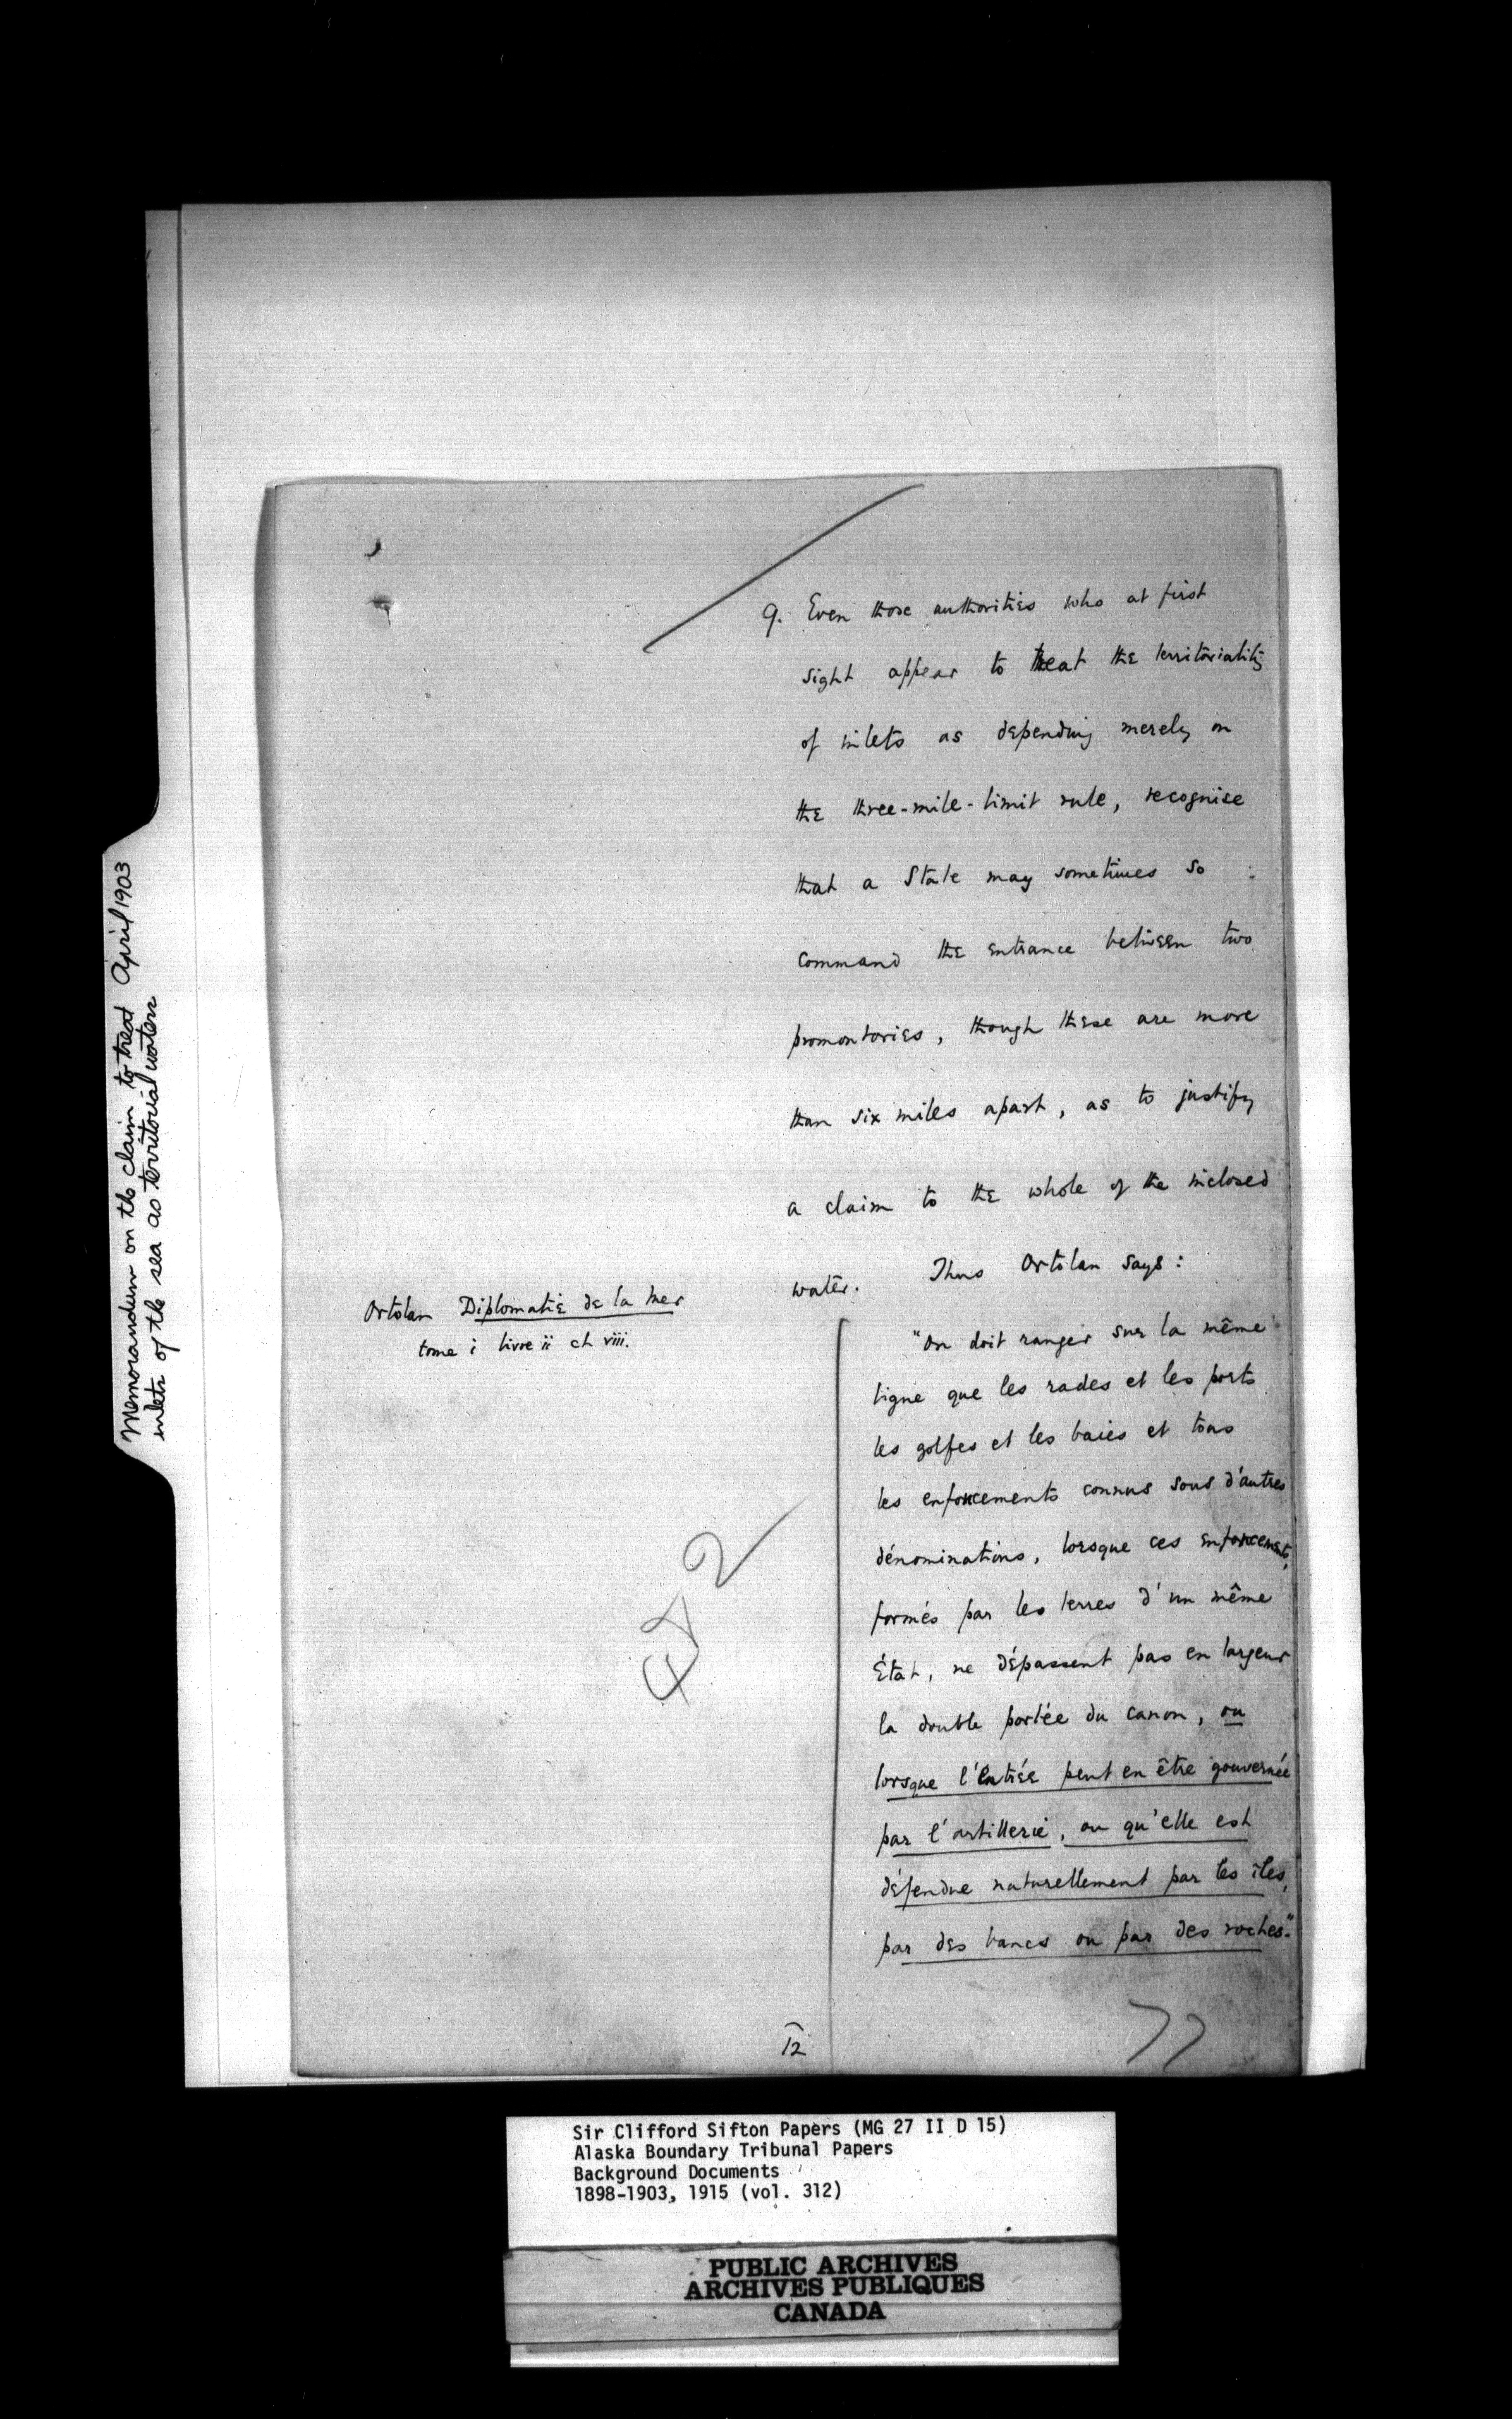 Memorandum on the claim to treat April 1903
inlets of the sea as territorial waters
9. Even those authorities who at first
sight appear to treat the territoriality
of inlets as depending merely on
the three-mile-limit rule, recognise
that a State may sometimes so
command the entrance between two
promontories, though these are more
than six miles apart, as to justify
a claim to the whole of the inclosed
water. Thus Ortolan says:
Ortolan Diplomatie de la Mer
tome i livre ii ch viii.
"On doit ranger sur la même
ligne que les rades et les ports
les golfes et les baies et tous
les enfoncements connus sous d'autres
dénominations, lorsque ces enfoncements,
formés par les terres d'un même
État, ne dépassent pas en largeur
la double portée du canon, ou
lorsque l'entrée peut en être gouvernée
par l'artillerie, ou qu'elle est
défendue naturellement par les îles,
par des bancs ou par des roches."
12
77
Sir Clifford Sifton Papers (MG 27 II D 15)
Alaska Boundary Tribunal Papers
Background Documents
1898-1903, 1915 (vol. 312)
PUBLIC ARCHIVES
ARCHIVES PUBLIQUES
CANADA